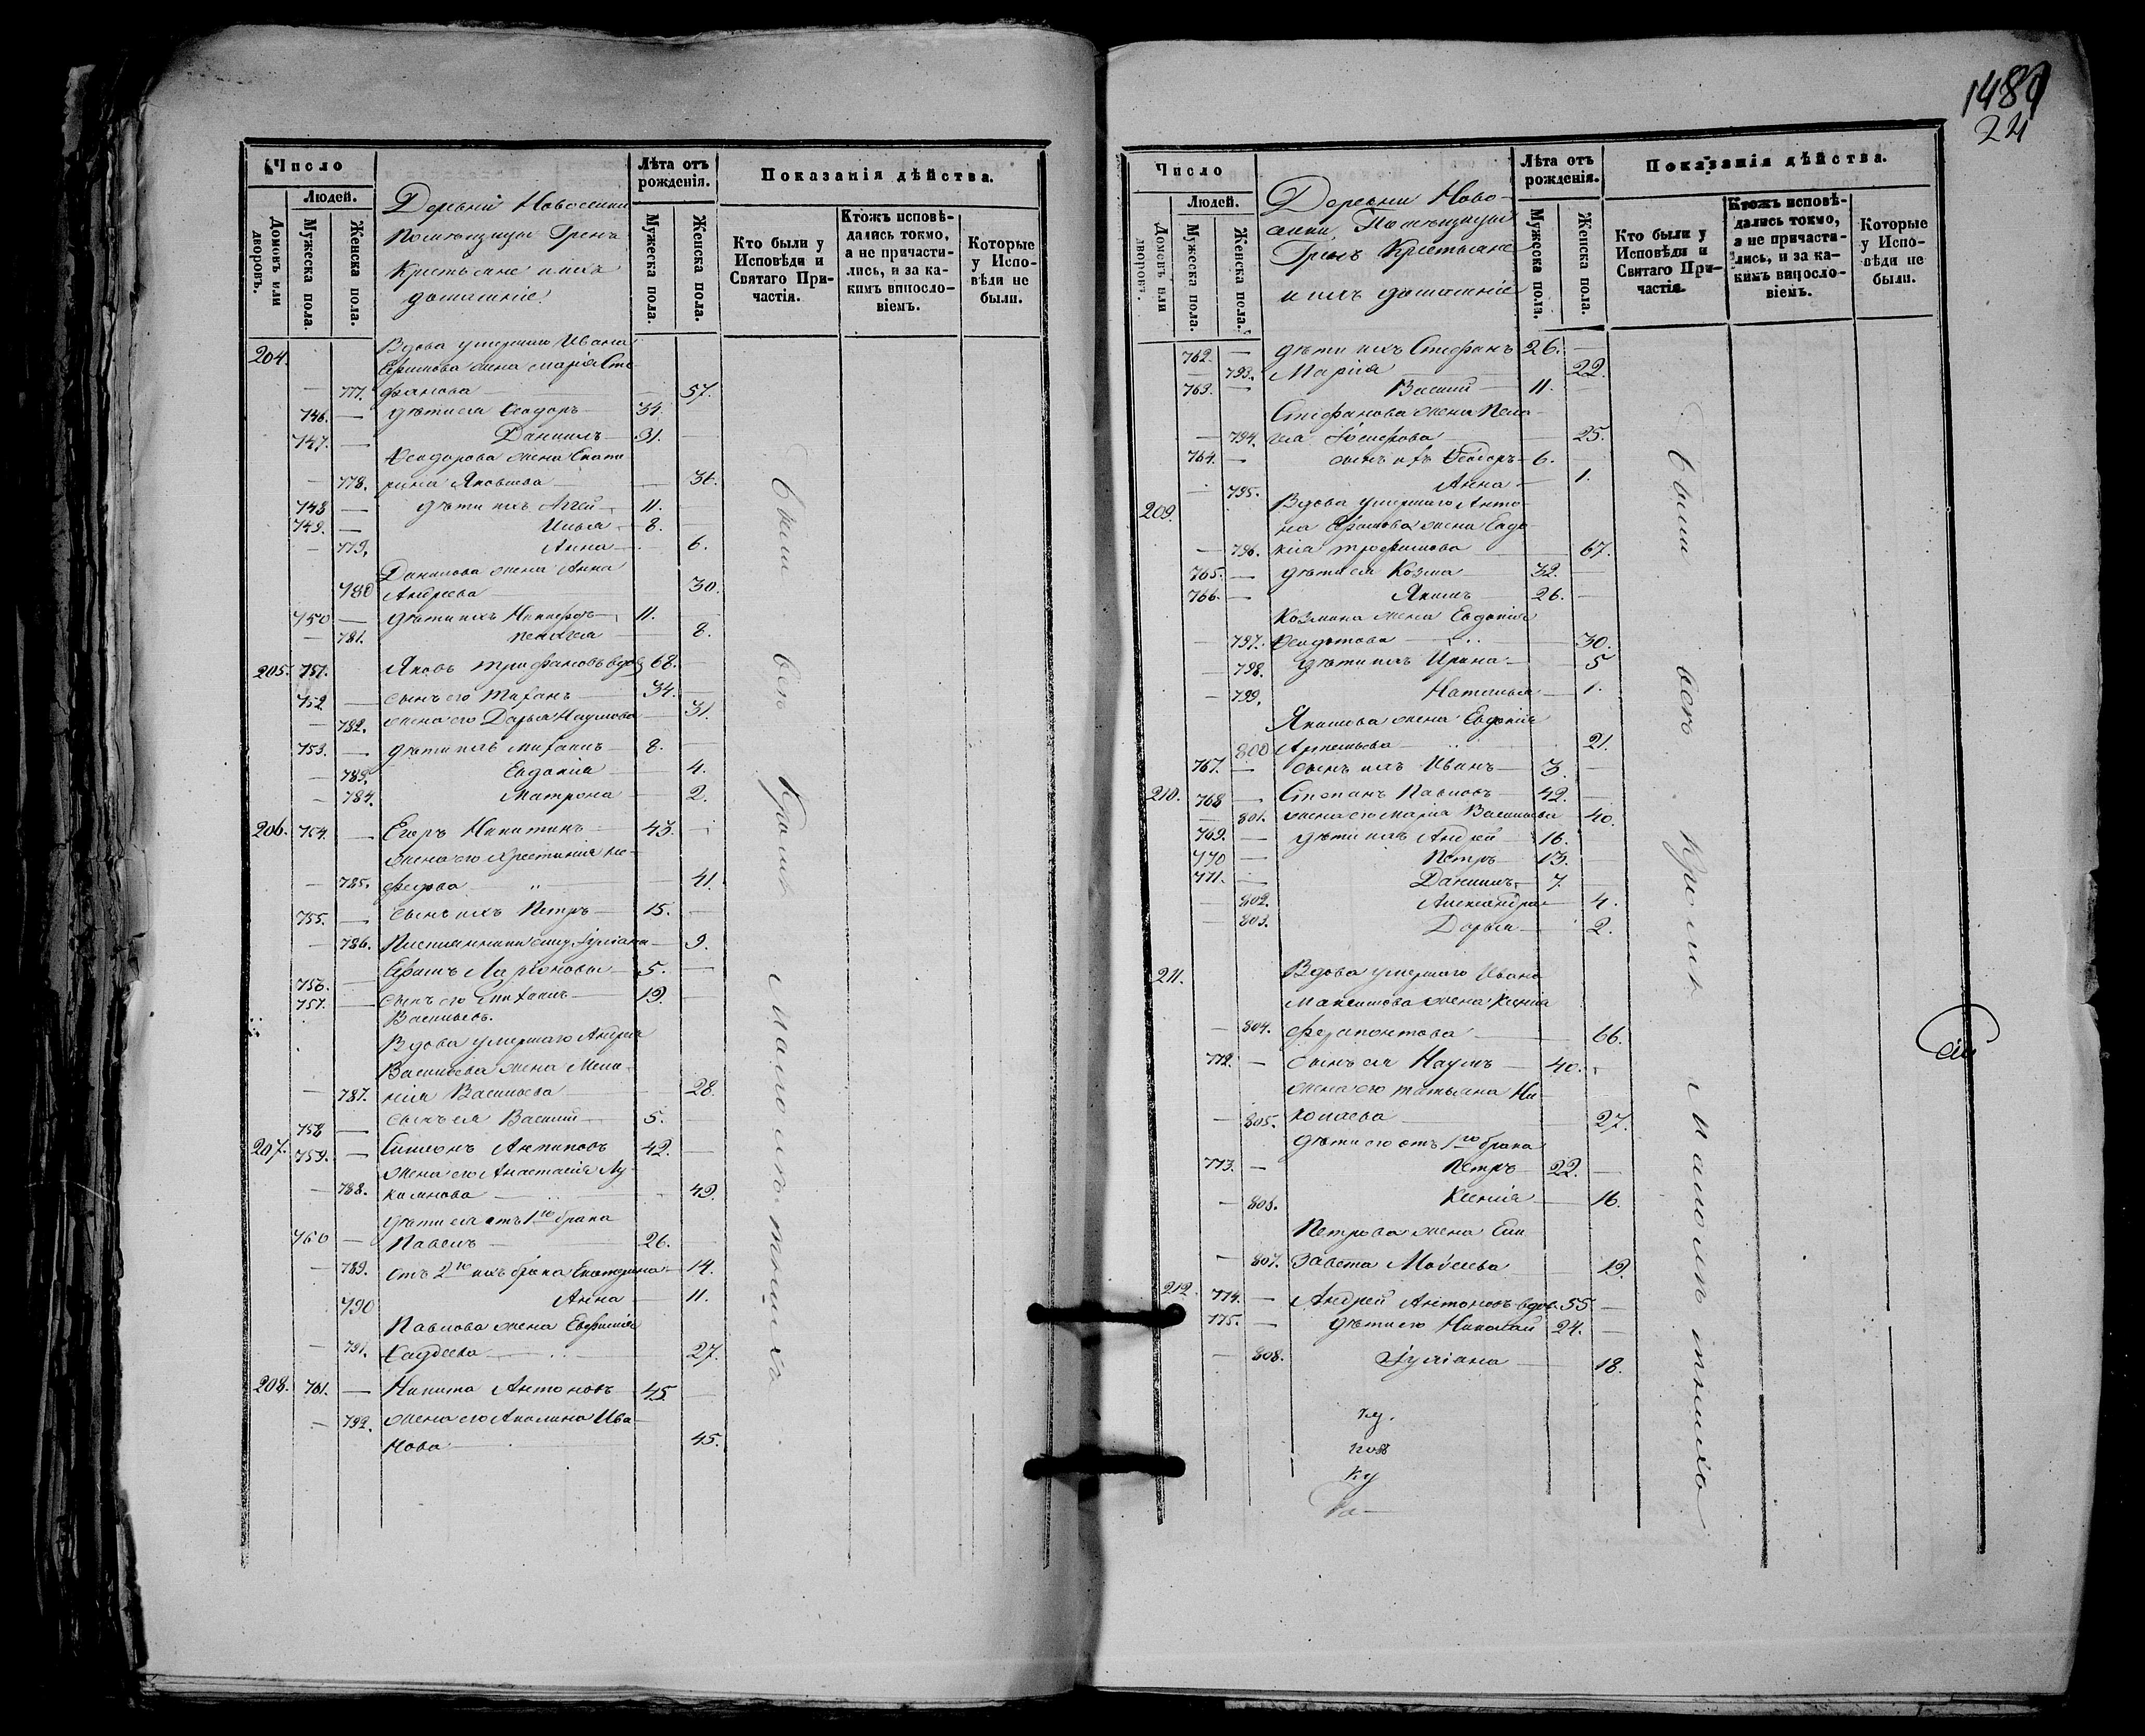 Число
Людей.
Домовъ или дворовъ.
Мужеска пола.
Женска пола.
Деревни Новоселки
Помѣщицы Гренъ
Крестьяне и ихъ
домашніе.
Лѣта отъ рожденія.
Мужеска пола.
Женска пола.
Показанія дѣйства.
Кто были у Исповѣди и Святаго Причастія.
Ктожъ исповѣдались токмо, а не причастились, и за какимъ винословіемъ.
Которые у Исповѣди не были.
204. Вдова умершаго Ивана
Ефимова жена Марія Сте
777. фанова 57.
746. — дѣти ея Ѳеодоръ 34.
747. — Даніилъ 31.
Ѳеодорова жена Екате
778. рина Яковлева 31.
748 — дѣти ихъ Аггей 11.
749. — Илья 8.
779. Анна 6.
Данилова жена Анна
780 Андреева 30.
750 — дѣти ихъ Никифоръ 11.
781. Пелагея 8.
205. 751. Яковъ Трофимовъ вдов 68.
752 — сынъ его 34.
782. жена его Дарья Наумова 31.
753. — дѣти ихъ Михаилъ 8.
783. Евдокія 4.
784. Матрона 2.
206. 754. — Егоръ Никитинъ 43.
жена его Христинія Не-
785. федова 41.
755. — сынъ ихъ Петръ 15.
786. 9.
756. — Ефимъ Ларіоновъ 5.
757. — сынъ его 19.
Васильевъ.
Вдова умершаго Андрея
Васильева жена Мела-
787. нія Васильева 28.
758 — сынъ ея Василій 5.
207. 759. — Симеонъ Антиповъ 42.
жена его Анастасія Лу-
788. кіанова 49.
дѣти ея отъ 1го брака
760 — Павелъ 26.
789. отъ 2го ихъ брака Екатерина 14.
790 Анна 11.
Павлова жена Евфимія
791. Ѳаддеева 27.
208. 761. — Никита Антоновъ 45.
792. жена его Акилина Ива-
нова 45.
были всѣ кромѣ малолѣтнихъ
1489
24
Число
Людей.
Домовъ или дворовъ.
Мужеска пола.
Женска пола.
Деревни Ново-
Помѣщицы
Гренъ Крестьяне
и ихъ домашніе
Лѣта отъ рожденія.
Мужеска пола.
Женска пола.
Показанія дѣйства.
Кто были у Исповѣди и Святаго Причастія.
Ктожъ исповѣдались токмо, а не причастились, и за какимъ винословіемъ.
Которые у Исповѣди не были.
762. — дѣти ихъ Стефанъ 26.
793. Марія 22.
763. — Василій 11.
Стефанова жена Пела-
794. гея Іосифова 25.
764. — сынъ ихъ Ѳеодоръ 6.
795. Анна 1.
209. Вдова умершаго Анто-
на Ефимова жена Евдо-
796. кія Трофимова 67.
765. — дѣти ея Козма 32.
766. — Якимъ 26.
Козмина жена Евдокія
797. Ѳедотова 30.
798. дѣти ихъ Ирина 5
799. Наталья 1.
Якимова жена Евдокія
800 Артемьева 21.
767. — сынъ ихъ Иванъ 3.
210. 768 — Степанъ Павловъ 42.
801. жена его Марія Васильева 40.
769. — дѣти ихъ Андрей 16.
770 — Петръ 13.
771. — Даніилъ 7.
802. Александра 4.
803. Дарья 2.
211. Вдова умершаго Ивана
Максимова жена Ксенія
804. Ферапонтова 66.
772. — сынъ ея Наумъ 40.
жена его Татьяна Ни-
805. колаева 27.
дѣти его отъ 1го брака
773. — Петръ 22.
806. Ксенія 16.
Петрова жена Ели
807. завета Моѵсеева 19.
212. 774. — Андрей Антоновъ вдов. 55.
775. — дѣти его Николай 24.
808. Іуліана 18.
были всѣ кромѣ малолѣтнихъ